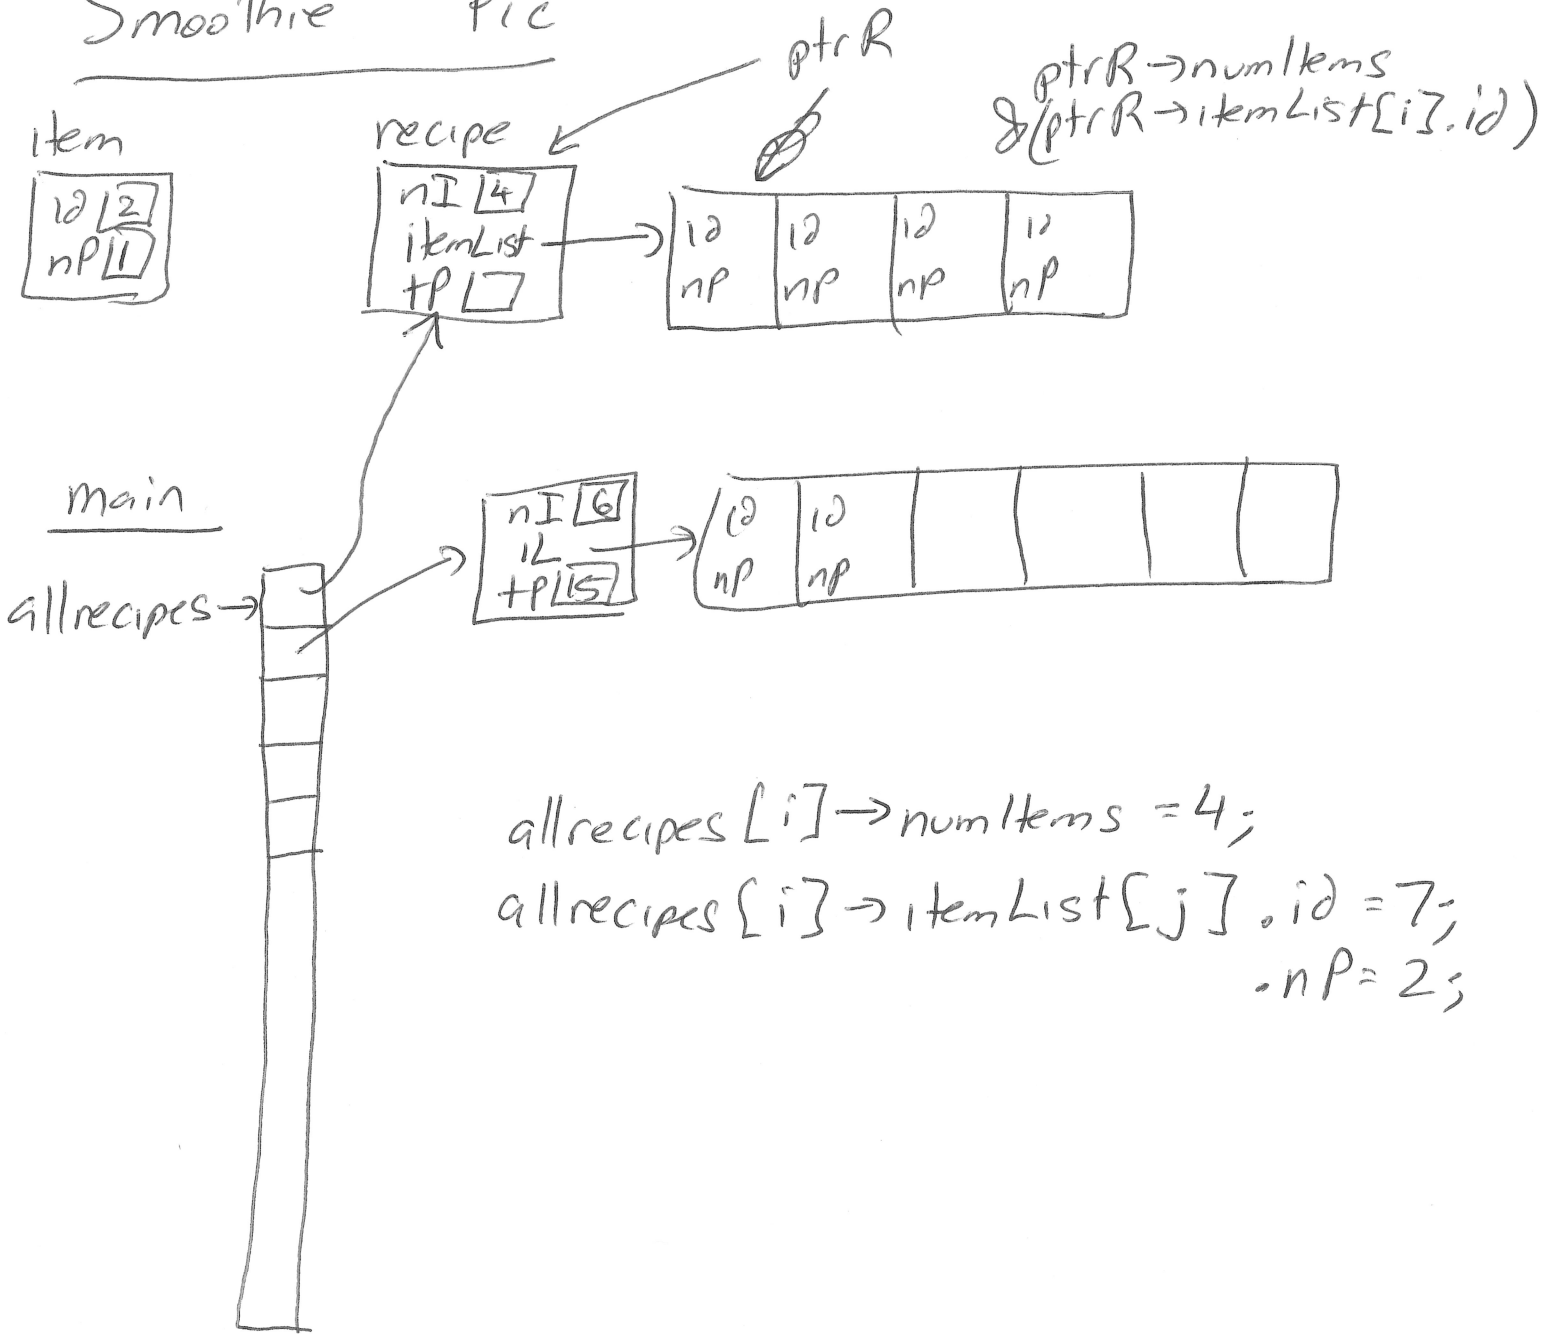 Smoothie Pic
ptrR
ptrR→numItems
&(ptrR→itemList[i].id)
item
id 2
nP 1
recipe
nI 4
itemList
tP
id id id id
nP nP nP nP
main
allrecipes
nI 6
iL
tP 15
id id
nP nP
allrecipes[i]→numItems = 4;
allrecipes[i]→itemList[j].id = 7;
.nP = 2;